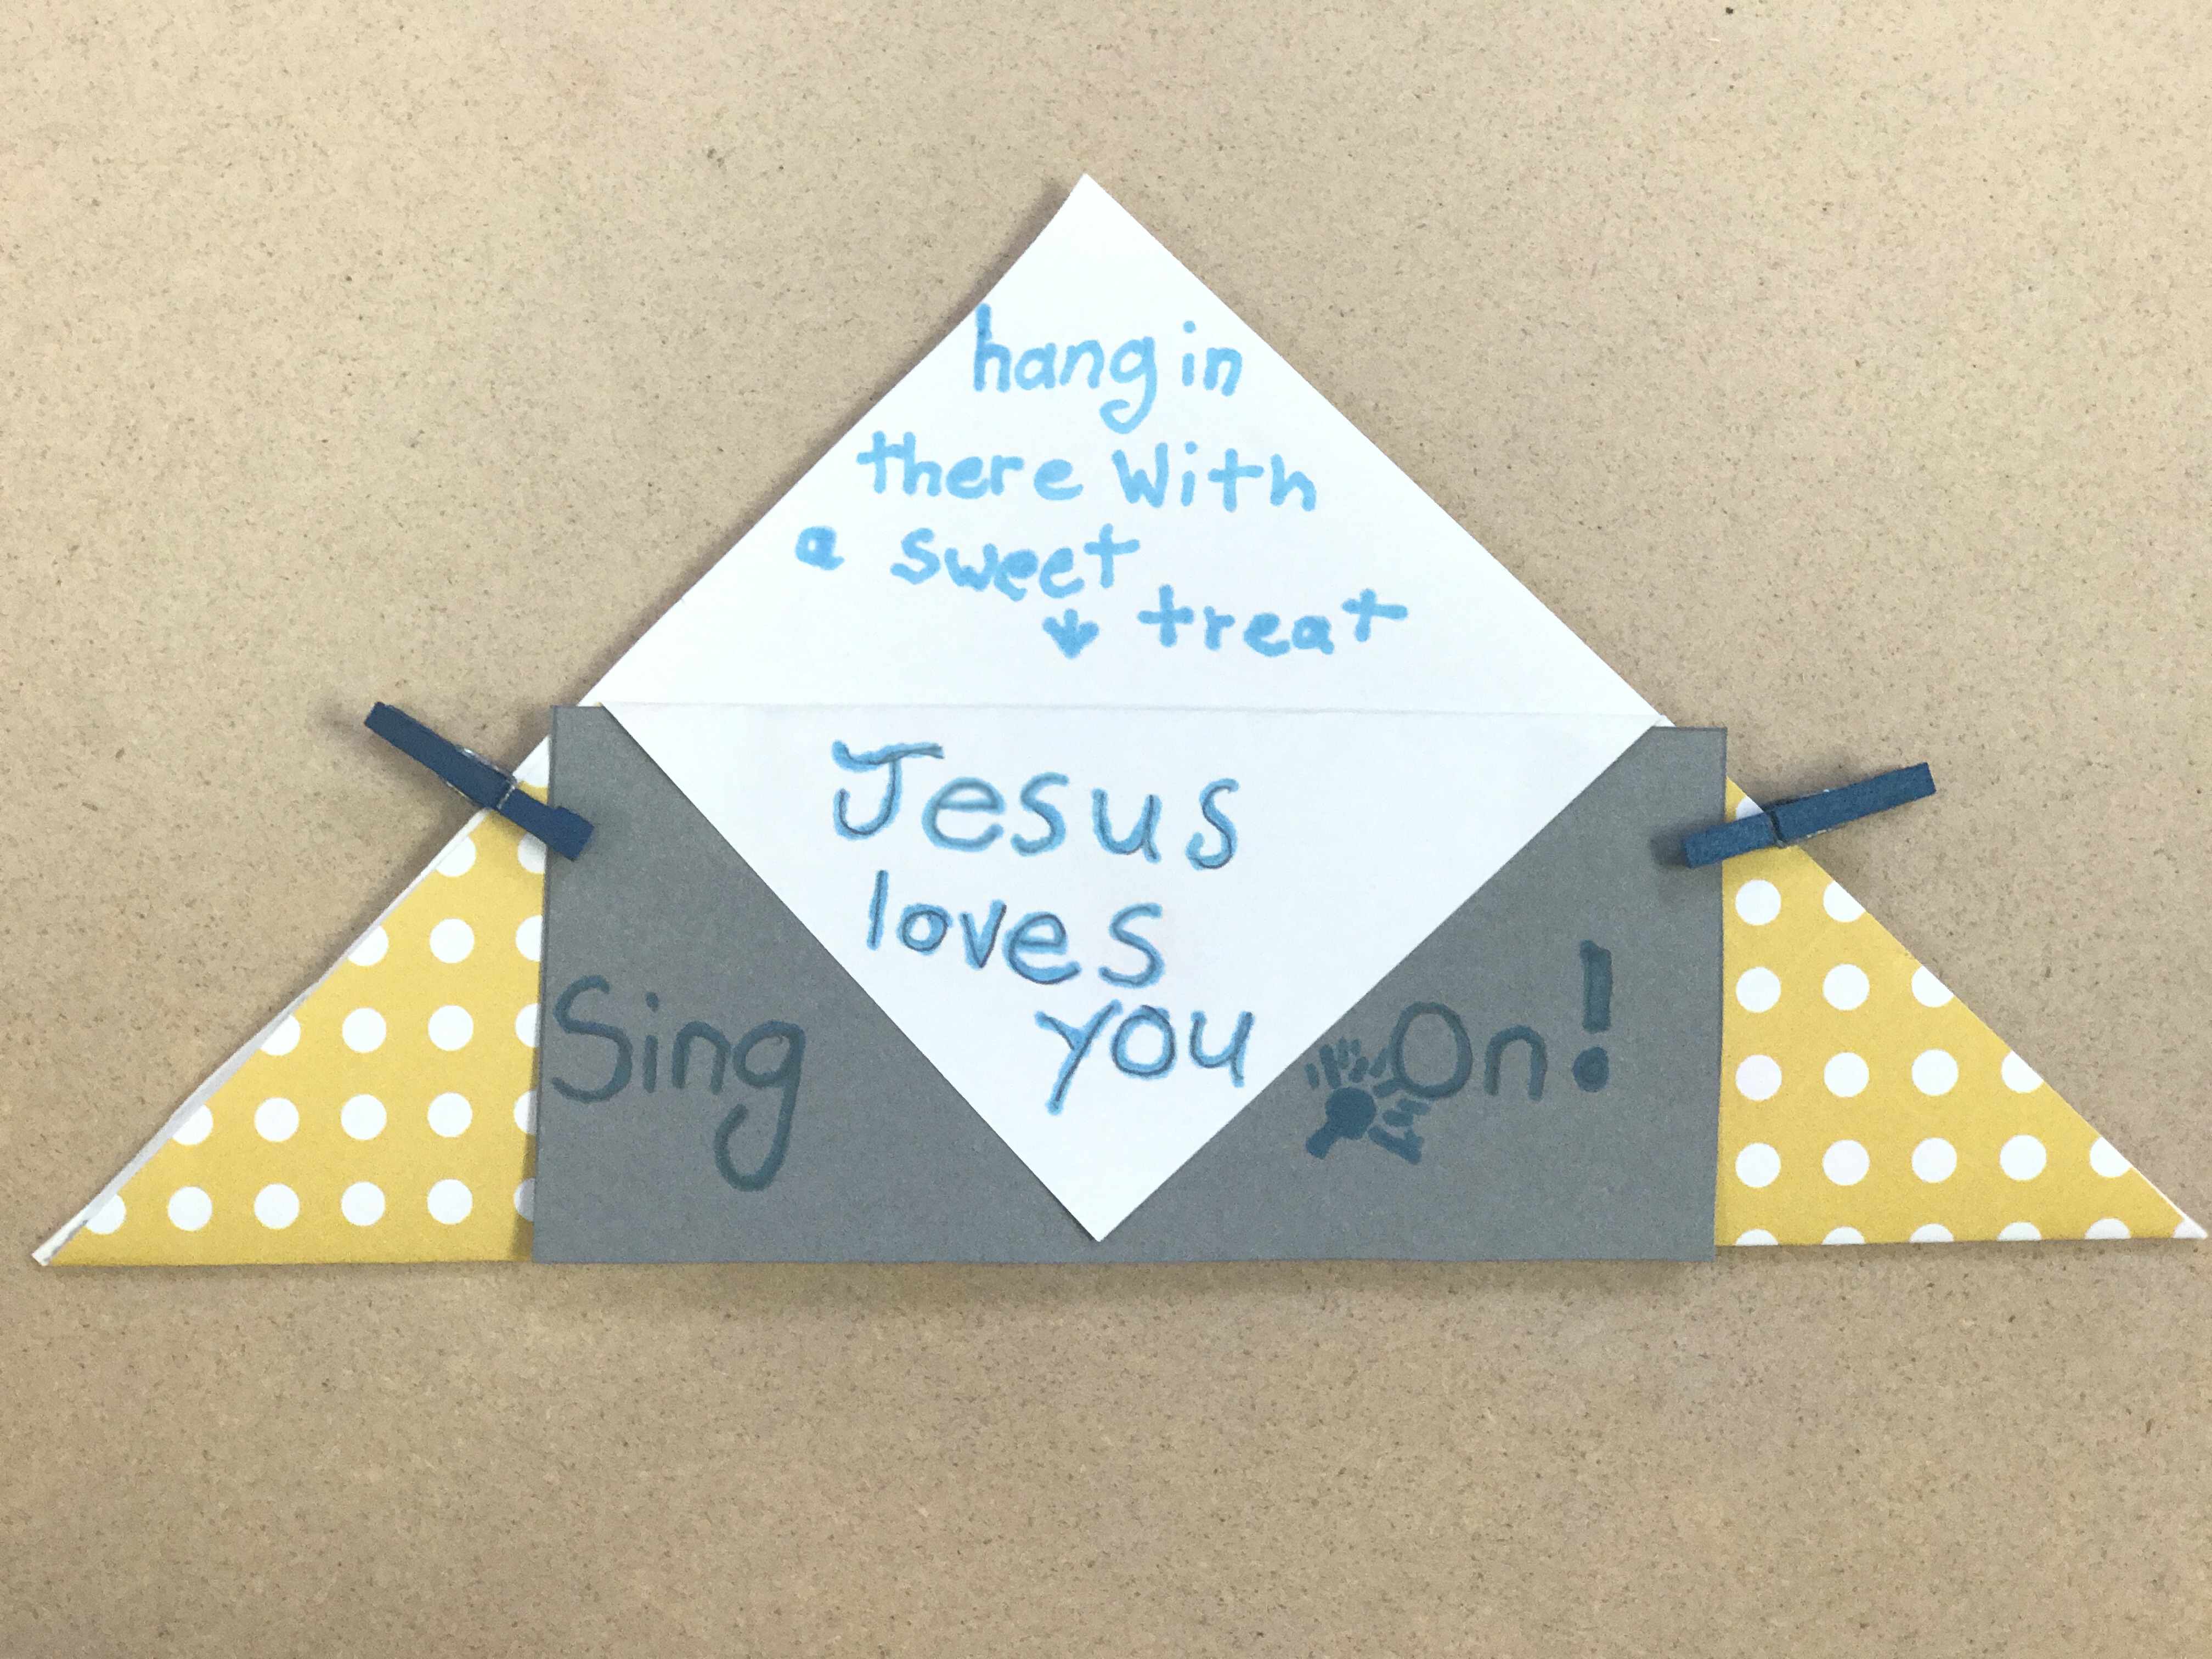 hang in
there With
a sweet
treat
Jesus
loves
you
Sing On!